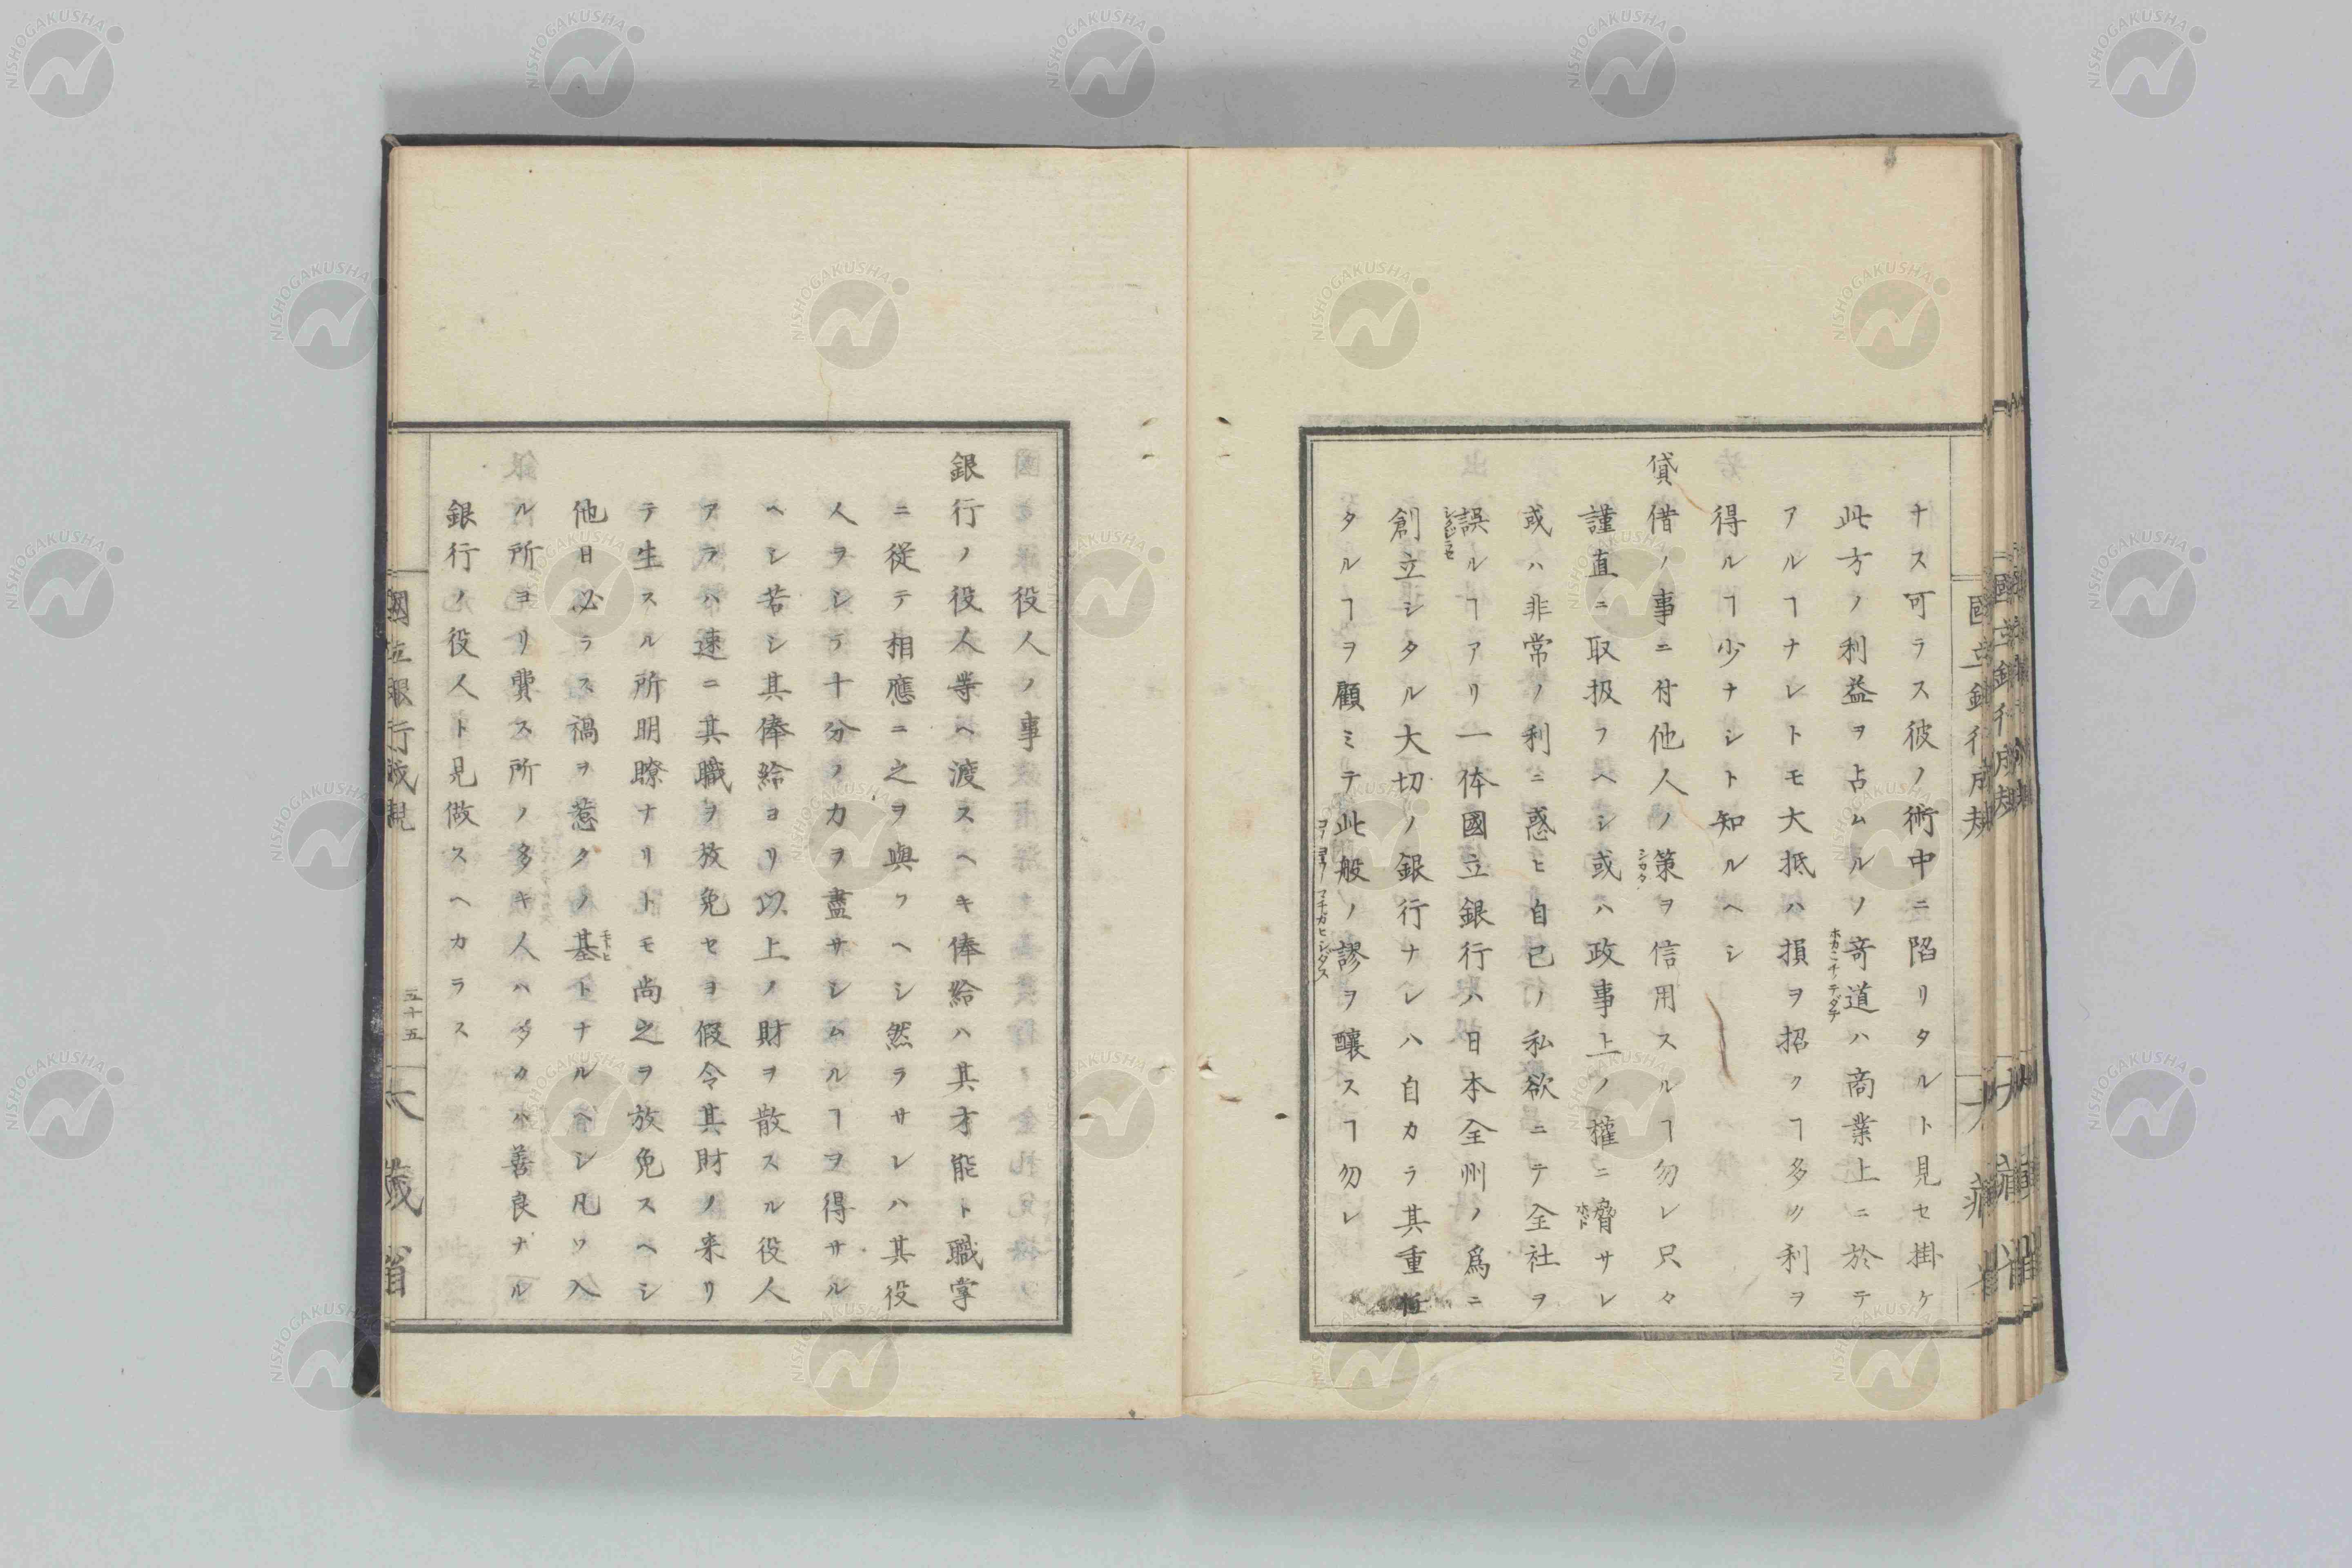 ナス可ラス彼ノ術中ニ陷リタルト見セ掛ケ
此方ノ利益ヲ占ムルノ竒道ハ商業上ニ於テ
ホカニチノテダテ
アルヿナレトモ大抵ハ損ヲ招クヿ多ク利ヲ
得ルヿ少ナシト知ルヘシ
貸借ノ事ニ付他人ノ策ヲ信用スルヿ勿レ只々
シカタ
謹直ニ取扱フヘシ或ハ政事上ノ權ニ脅サレ
或ハ非常ノ利ニ惑ヒ自己ノ私欲ニテ全社ヲ
誤ルヿアリ一体國立銀行ハ日本全州ノ爲ニ
創立シタル大切ノ銀行ナレハ自カラ其重任
タルヿヲ顧ミテ此般ノ謬ヲ釀スヿ勿レ
役人ノ事
銀行ノ役人等ヘ渡スヘキ俸給ハ其才能ト職掌
ニ從テ相應ニ之ヲ與フヘシ然ラサレハ其役
人ヲシテ十分ノ力ヲ盡サシムルヿヲ得サル
ヘシ若シ其俸給ヨリ以上ノ財ヲ散スル役人
アラハ速ニ其職ヲ放免セヨ假令其財ノ来リ
テ生スル所明瞭ナリトモ尚之ヲ放免スヘシ
他日必ラス禍ヲ惹クノ基トナルヘシ凡ソ入
モトヒ
ル所ヨリ費ス所ノ多キ人ハタカハ善良ナル
銀行ノ役人ト見做スヘカラス
國立銀行成規
五十五
大藏省